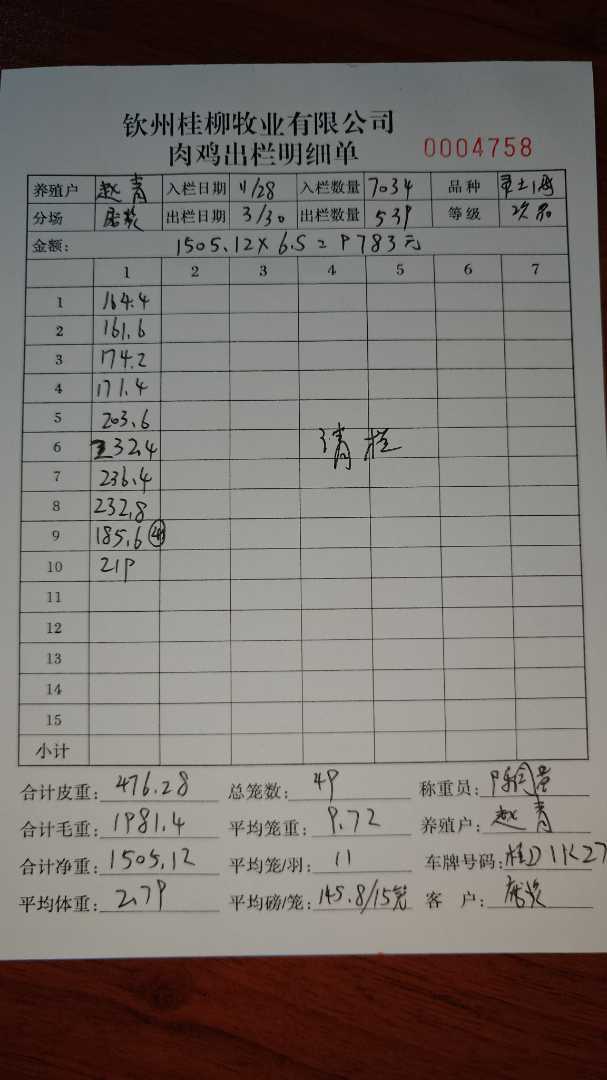 钦州桂柳牧业有限公司
肉鸡出栏明细单 0004758
养殖户 赵青 入栏日期 11/28 入栏数量 7034 品种
分场 出栏日期 3/30 出栏数量 539 等级 次品
金额: 1505.12×6.5=9783元
1 2 3 4 5 6 7
1 164.4
2 161.6
3 174.2
4 171.4
5 203.6
6 232.4 清栏
7 236.4
8 232.8
9 185.6
10 219
11
12
13
14
15
小计
合计皮重: 476.28 总笼数: 49 称重员:
合计毛重: 1981.4 平均笼重: 9.72 养殖户: 赵青
合计净重: 1505.12 平均笼/羽: 11 车牌号码: 桂D1K27
平均体重: 2.79 平均磅/笼: 145.8/15笼 客 户: